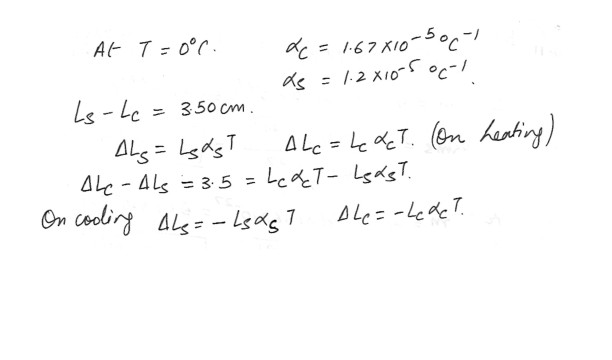 At T = 0°C. αc = 1.67 x 10⁻⁵ °C⁻¹
αs = 1.2 x 10⁻⁵ °C⁻¹.
Ls - Lc = 3.50 cm.
ΔLs = LsαsT ΔLc = LcαcT. (On heating)
ΔLc - ΔLs = 3.5 = LcαcT - LsαsT.
On cooling ΔLs = - LsαsT ΔLc = - LcαcT.